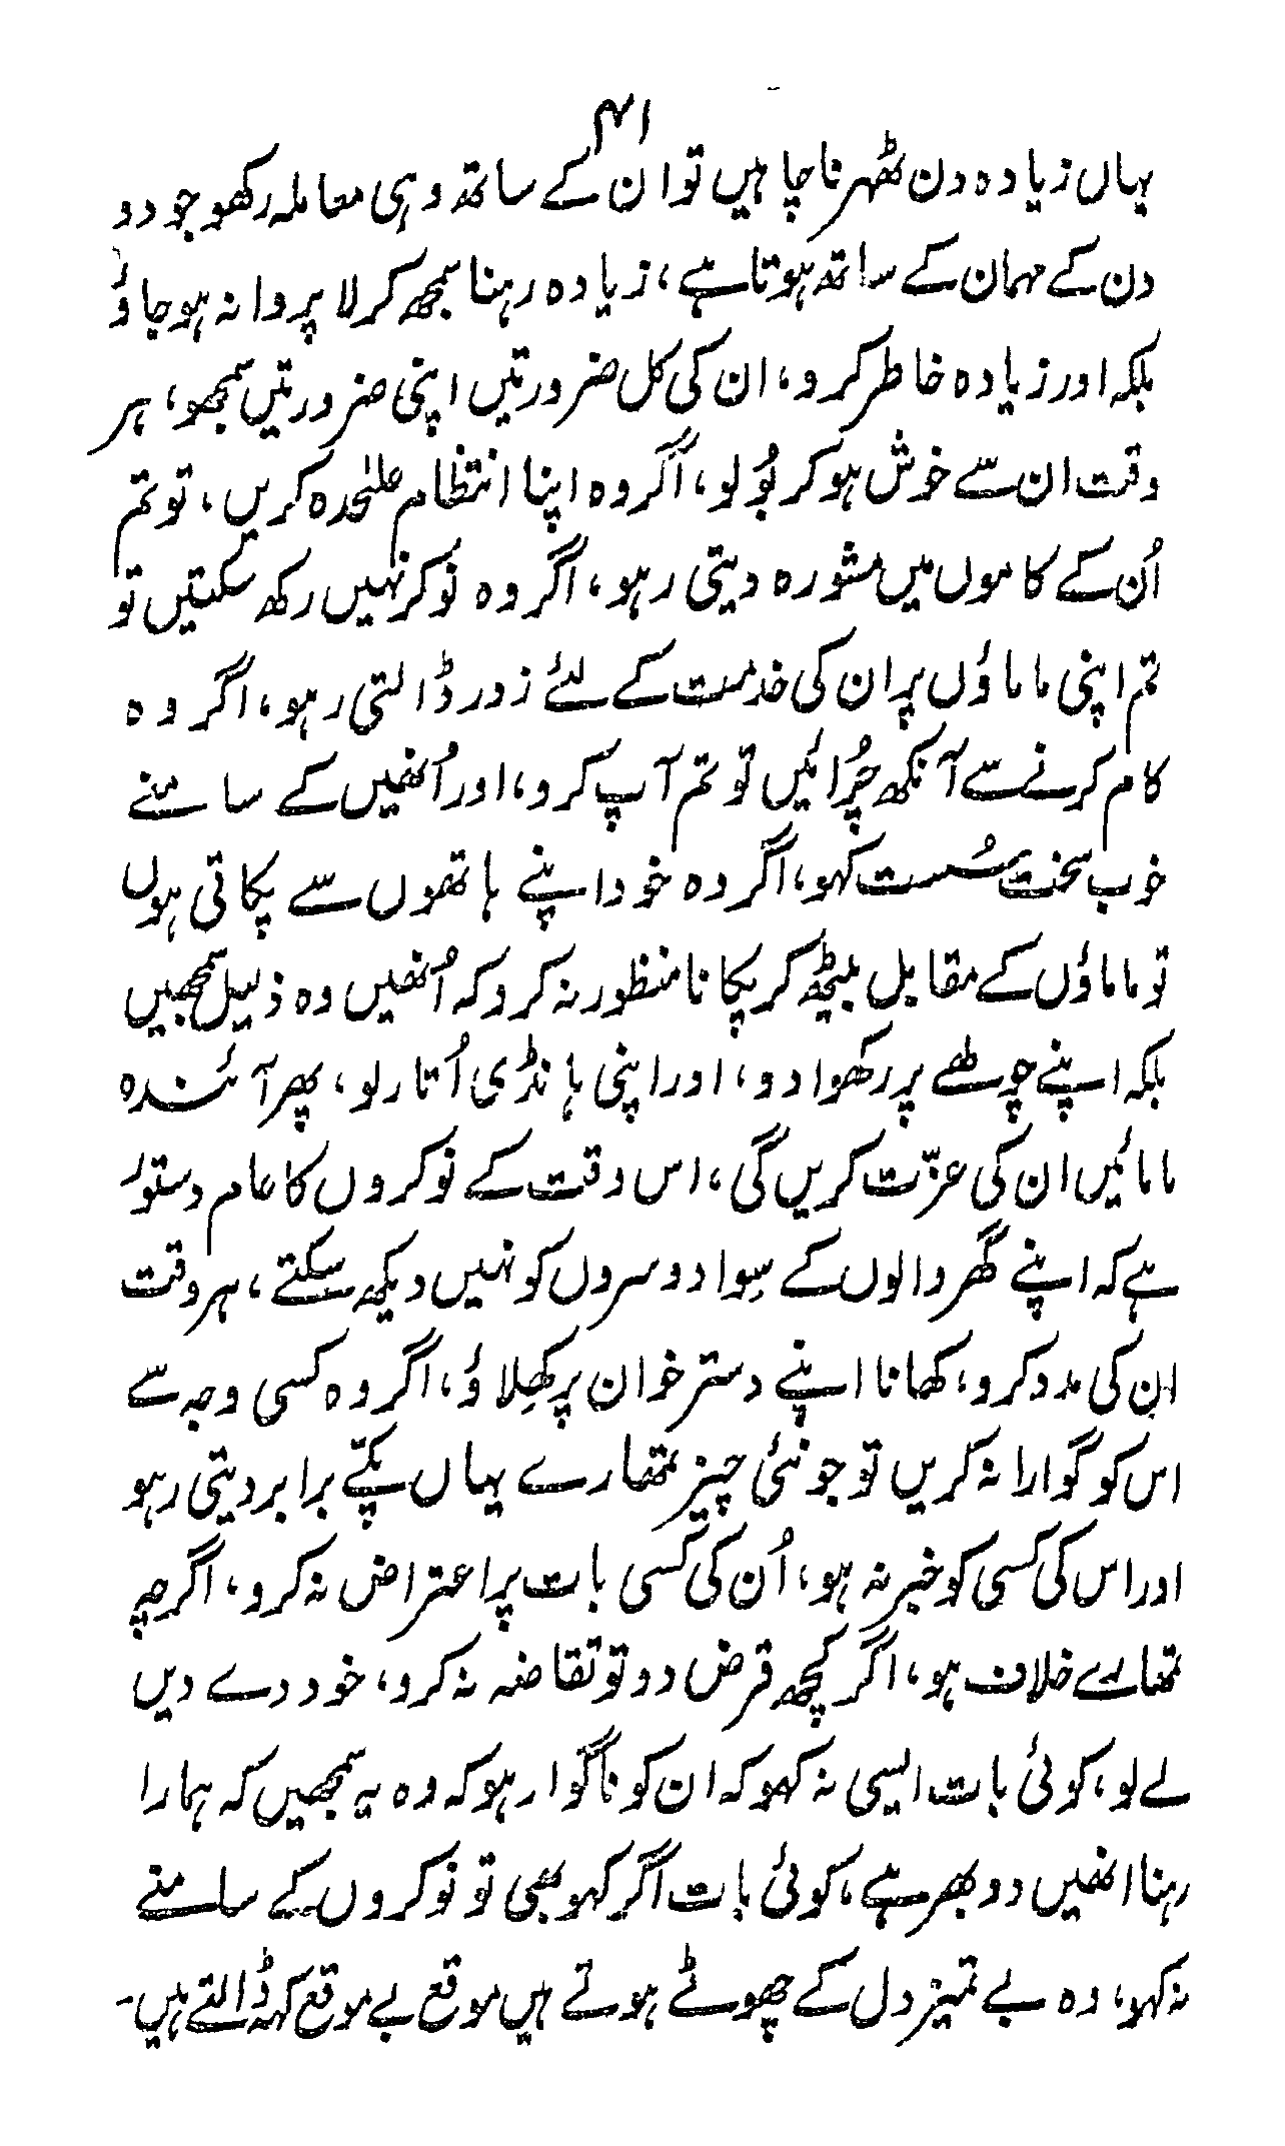 ۴۱
یہاں زیادہ دن ٹھہرنا چاہیں تو ان کے ساتھ وہی معاملہ رکھو جو دو
دن کے مہمان کے ساتھ ہوتا ہے، زیادہ رہنا سمجھ کر لا پروا نہ ہو جاؤ
بلکہ اور زیادہ خاطر کرو، ان کی کل ضرورتیں اپنی ضرورتیں سمجھو، ہر
وقت ان سے خوش ہو کر بُولو، اگر وہ اپنا انتظام علیٰحدہ کریں، تو تم
اُن کے کاموں میں مشورہ دیتی رہو، اگر وہ نوکر نہیں رکھ سکتیں تو
تم اپنی ماماؤں پر ان کی خدمت کے لئے زور ڈالتی رہو، اگر وہ
کام کرنے سے آنکھ چُرائیں تو تم آپ کرو، اور اُنھیں کے سامنے
خوب سخت سُست کہو، اگر وہ خود اپنے ہاتھوں سے پکاتی ہوں
تو ماماؤں کے مقابل بیٹھ کر پکانا منظور نہ کرو کہ اُنھیں وہ ذلیل سمجھیں
بلکہ اپنے چولھے پر رکھوا دو، اور اپنی ہانڈی اُتار لو، پھر آئندہ
مامائیں ان کی عزّت کریں گی، اس وقت کے نوکروں کا عام دستور
ہے کہ اپنے گھر والوں کے سِوا دوسروں کو نہیں دیکھ سکتے، ہر وقت
ان کی مدد کرو، کھانا اپنے دستر خوان پر کھِلاؤ، اگر وہ کسی وجہ سے
اس کو گوارا نہ کریں تو جو نئی چیز تمھارے یہاں پکّے برابر دیتی رہو
اور اس کی کسی کو خبر نہ ہو، اُن کی کسی بات پر اعتراض نہ کرو، اگرچہ
تمھارے خلاف ہو، اگر کچھ قرض دو تو تقاضہ نہ کرو، خود دے دیں
لے لو، کوئی بات ایسی نہ کہو کہ ان کو ناگوار ہو کہ وہ یہ سمجھیں کہ ہمارا
رہنا انھیں دوبھر ہے، کوئی بات اگر کہو بھی تو نوکروں کے سامنے
نہ کہو، وہ بے تمیز دل کے چھوٹے ہوتے ہیں موقع بے موقع کہہ ڈالتے ہیں۔